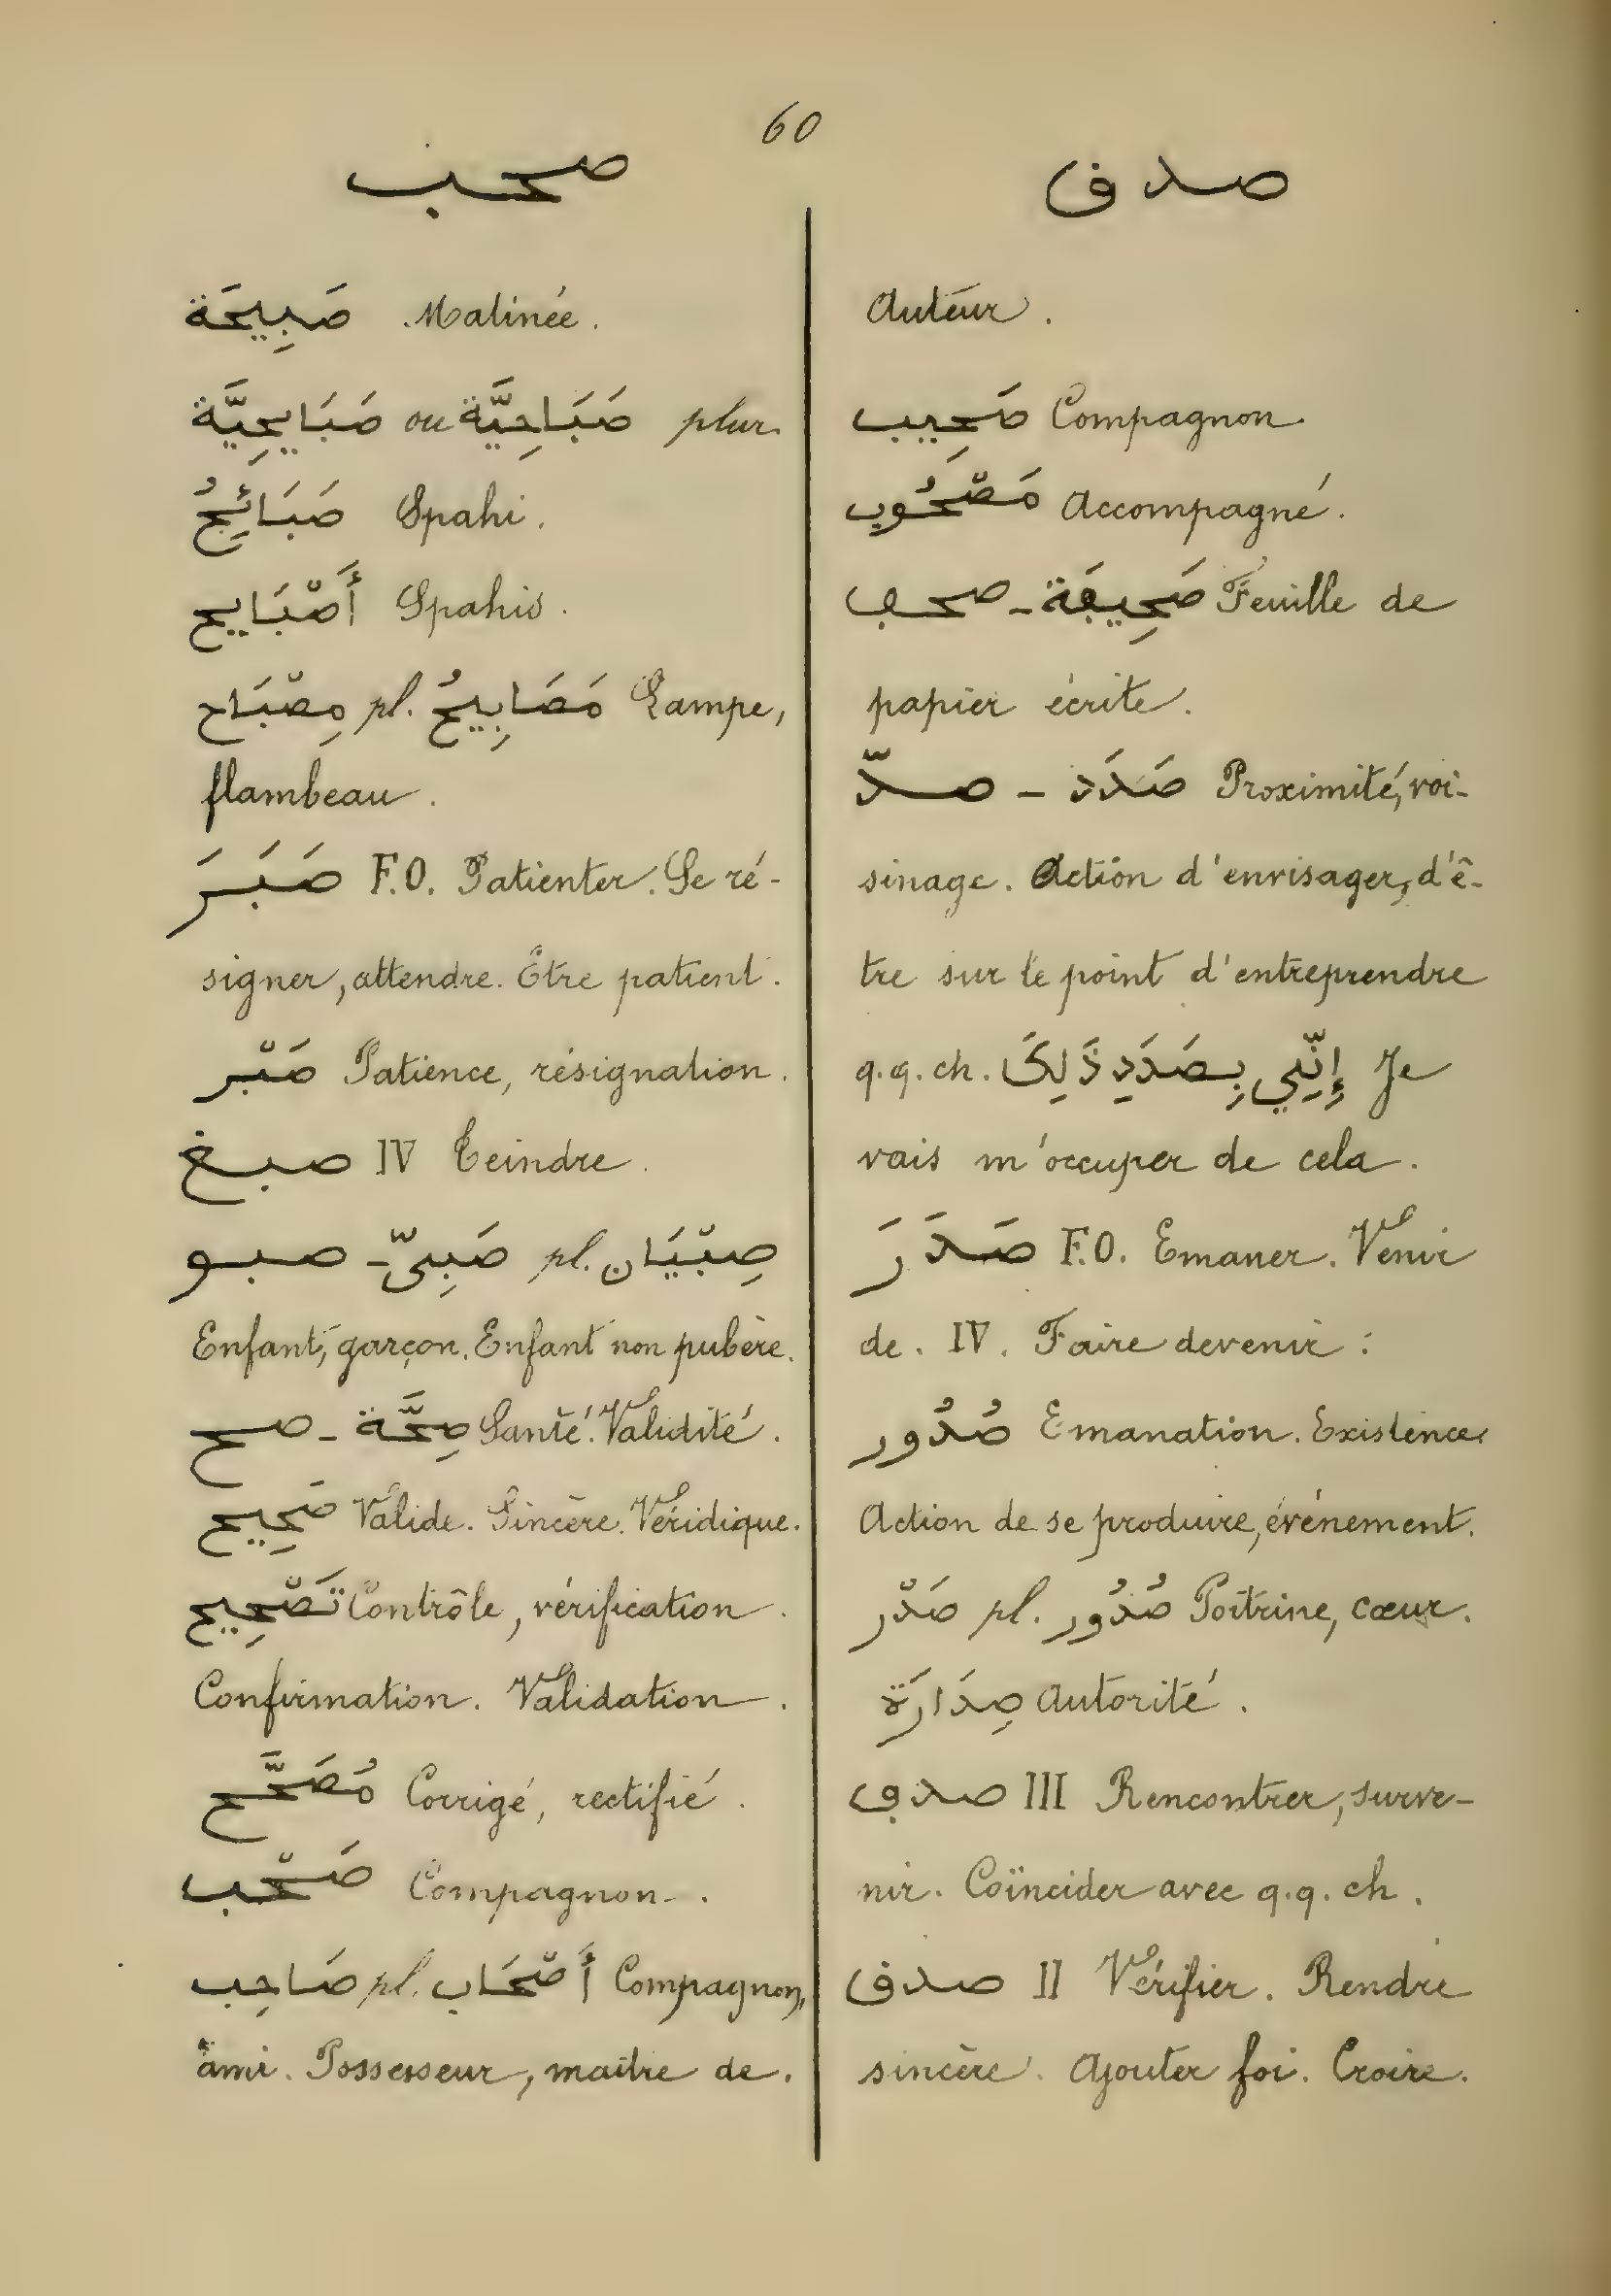 60
صحب
صدق
صَبِيحَة Matinée.
صَبَايحِيَّة ou صَبَاحِيَّة plur.
صَبَائِحُ Spahi.
أَصْبَايح Spahis.
مِصْبَاح pl. مَصَابِيحُ Lampe,
flambeau.
صَبَرَ F.O. Patienter. Se ré-
signer, attendre. Être patient.
صَبْر Patience, résignation.
صبغ IV Teindre.
صبو - صَبِىّ pl. صِبْيَان
Enfant, garçon. Enfant non pubère.
صح - صِحَّة Santé. Validité.
صَحِيح Valide. Sincère. Véridique.
تَصْحِيح Contrôle, vérification.
Confirmation. Validation.
مُصَحَّح Corrigé, rectifié.
صَحْب Compagnon.
صَاحِب pl. أَصْحَاب Compagnon,
ami. Possesseur, maitre de.
Auteur.
صَحِيب Compagnon.
مَصْحُوب Accompagné.
صحف - صَحِيفَة Feuille de
papier écrite.
صدّ - صَدَد Proximité, voi-
sinage. Action d'envisager, d'ê-
tre sur le point d'entreprendre
q.q. ch. إِنِّي بِصَدَدِ ذَٰلِكَ Je
vais m'occuper de cela.
صَدَرَ F.O. Emaner. Venir
de. IV. Faire devenir :
صُدُور Emanation. Existence.
Action de se produire, événement.
صَدْر pl. صُدُور Poitrine, cœur.
صِدَارَة Autorité.
صدف III Rencontrer, surve-
nir. Coïncider avec q.q. ch.
صدق II Vérifier. Rendre
sincère. Ajouter foi. Croire.